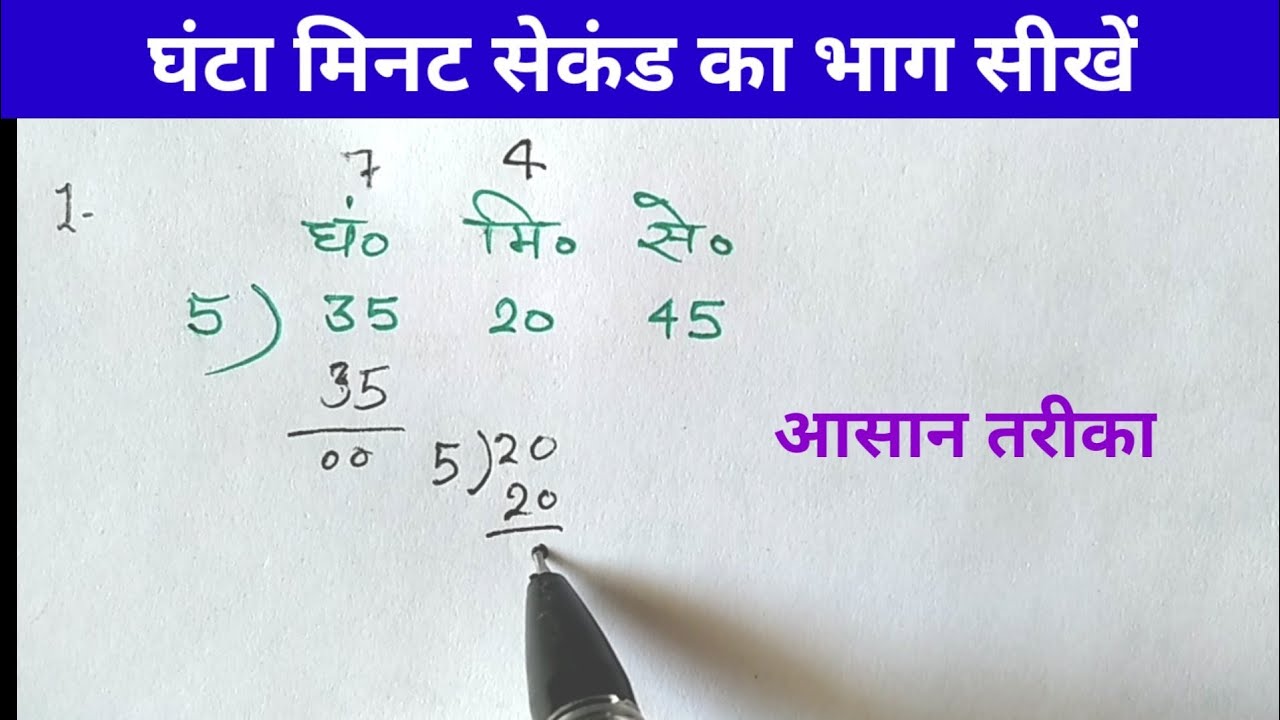 घंटा मिनट सेकंड का भाग सीखें
7 4
1-
घं० मि० से०
5) 35 20 45
35
00
5) 20
20
0
आसान तरीका